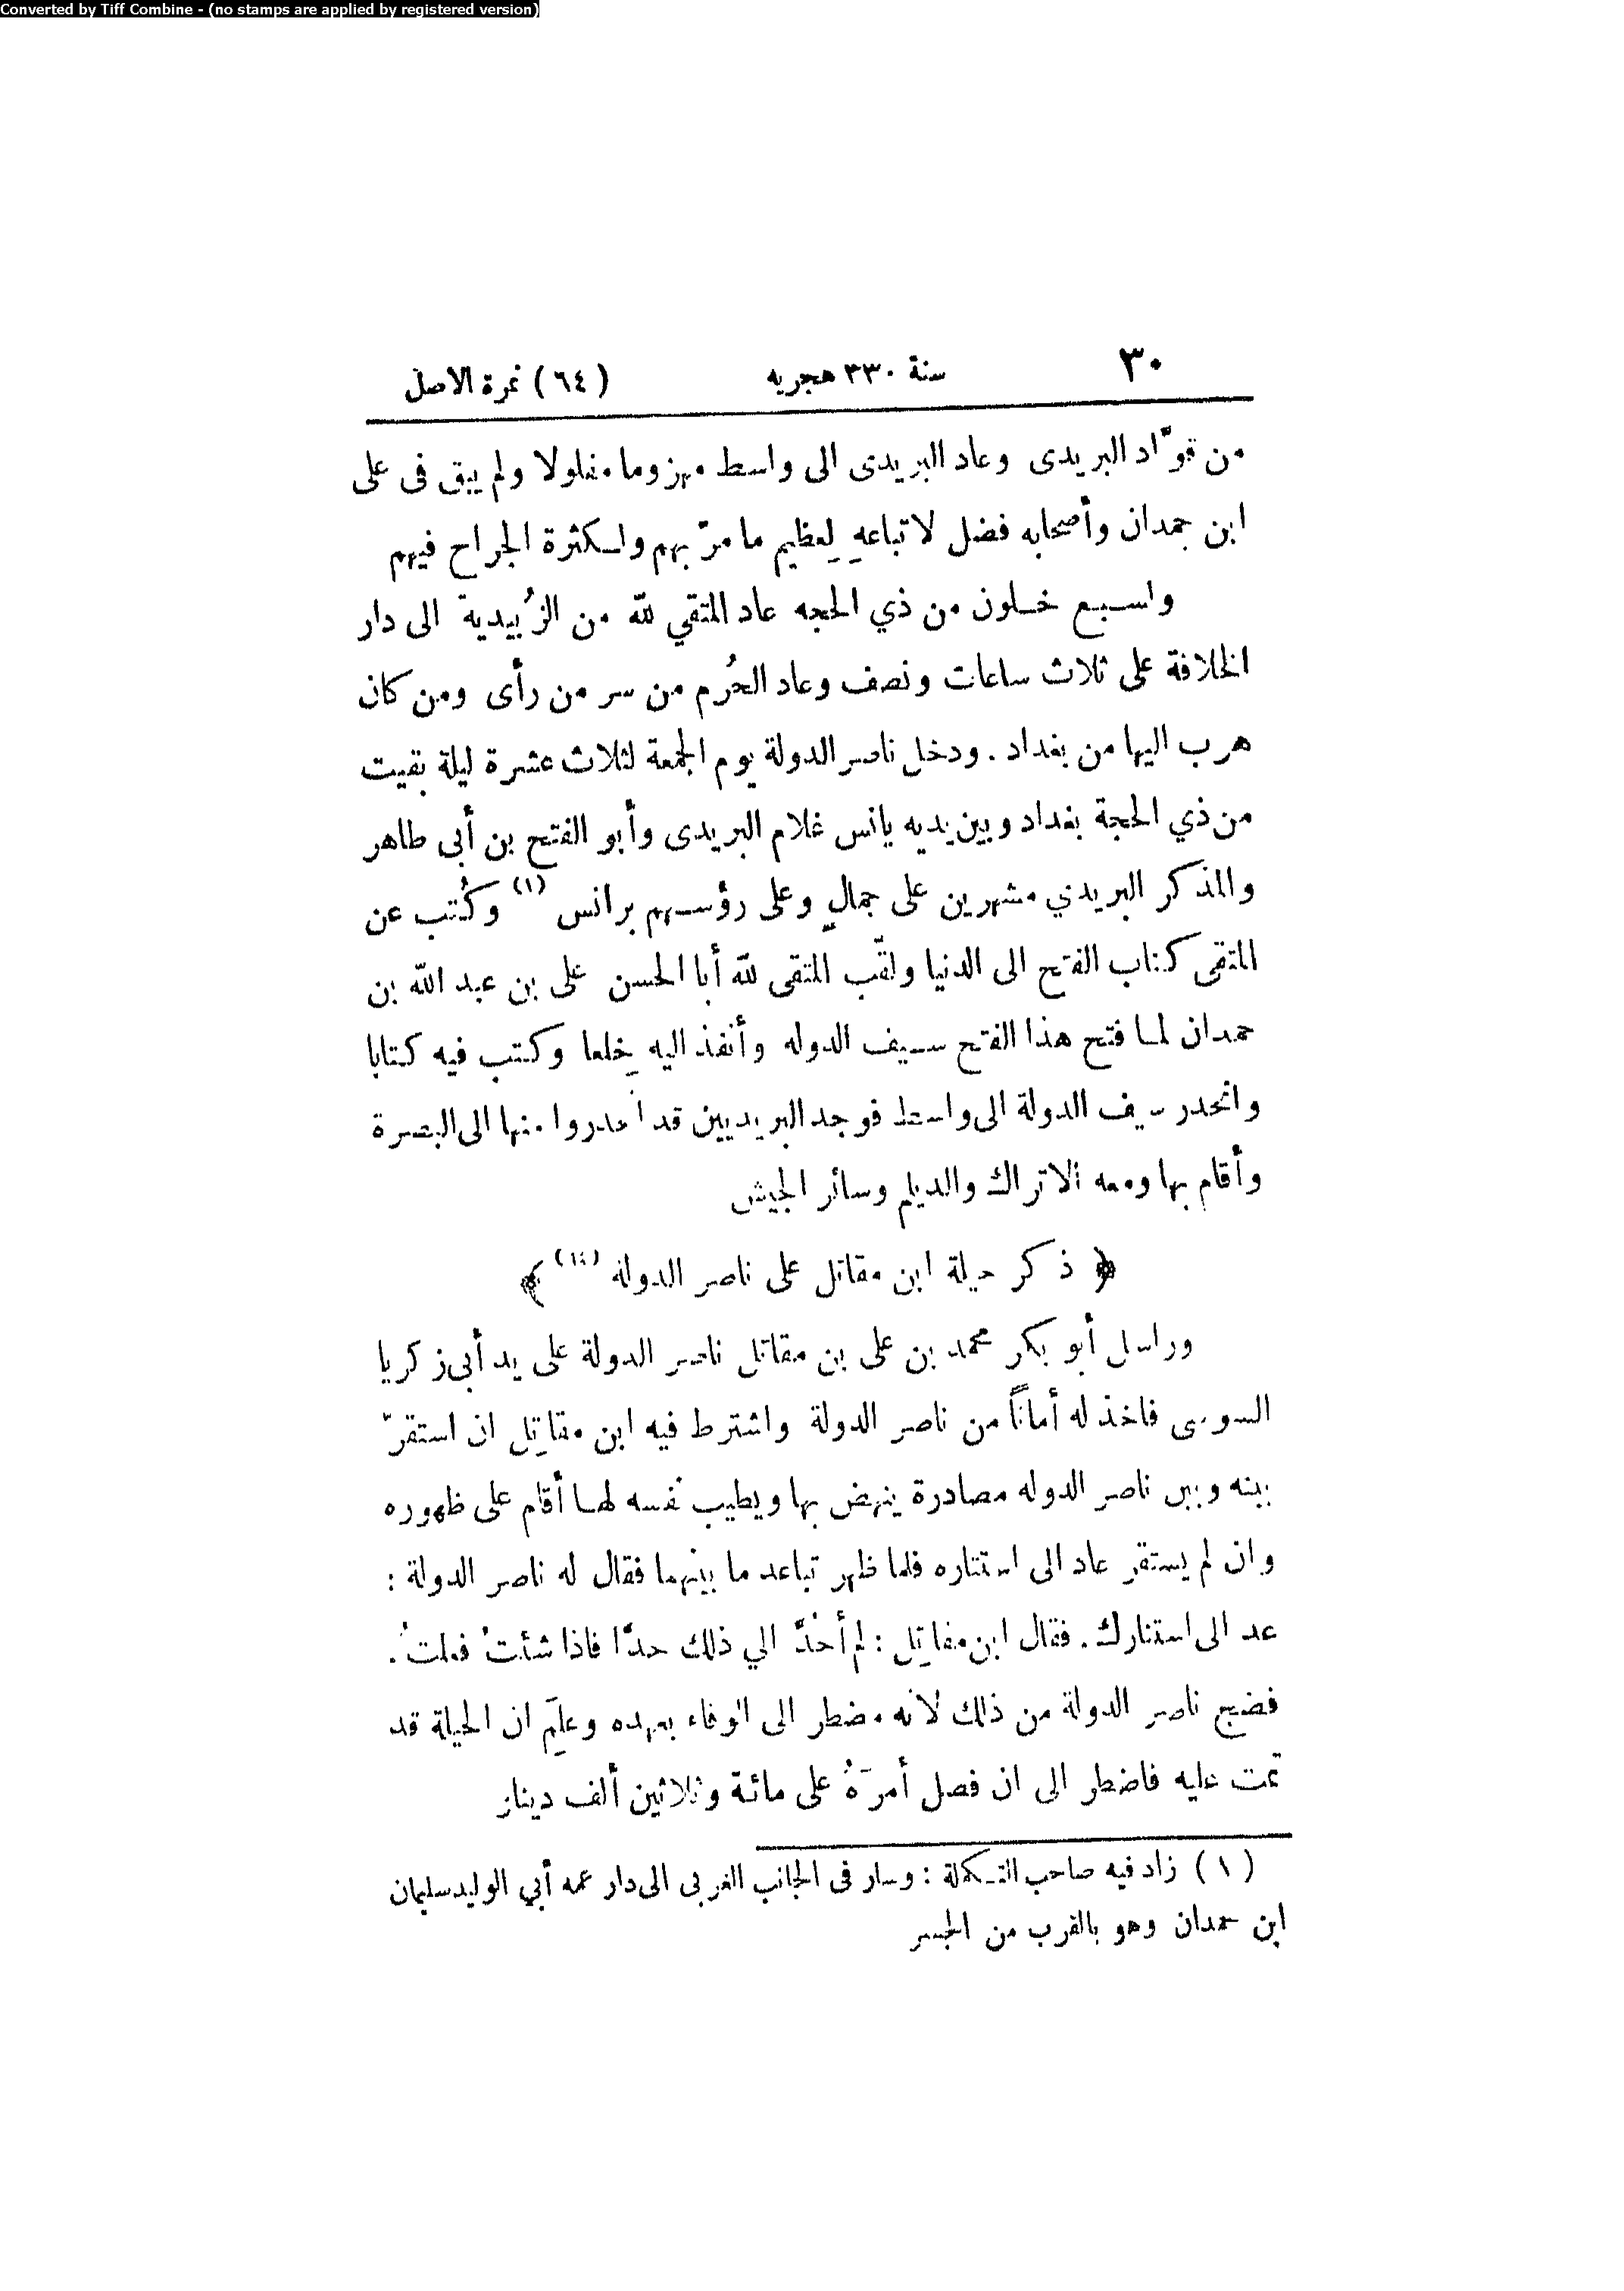 Converted by Tiff Combine - (no stamps are applied by registered version)
٣٠ سنة ٣٣٠ هجريه (٦٤) نمرة الاصل
من قوّاد البريدى وعاد البريدى الى واسط مهزوما مفلولا ولم يبق فى على
ابن حمدان وأصحابه فضل لاتباعهِ لِعظيم ما مرّ بهم ولكثرة الجراح فيهم
ولسبع خلون من ذي الحجه عاد المتقي لله من الزُبيدية الى دار
الخلافة على ثلاث ساعات ونصف وعاد الحُرم من سر من رأى ومن كان
هرب اليها من بغداد . ودخل ناصر الدولة يوم الجمعة لثلاث عشرة ليلة بقيت
من ذي الحجة بغداد وبين يديه يانس غلام البريدى وأبو الفتح بن أبى طاهر
والمذكر البريدي مشهرين على جمالٍ وعلى رؤسهم برانس (١) وكُتب عن
المتقى كتاب الفتح الى الدنيا ولقّب المتقى لله أبا الحسن على بن عبد الله بن
حمدان لما فتح هذا الفتح سيف الدوله وأنفذ اليه خِلعا وكتب فيه كتابا
وانحدر سيف الدولة الى واسط فوجد البريديين قد انحدروا منها الى البصرة
وأقام بها ومعه الاتراك والديلم وسائر الجيش
﴿ ذكر حيلة ابن مقاتل على ناصر الدولة ﴾
وراسل أبو بكر محمد بن على بن مقاتل ناصر الدولة على يد أبى زكريا
السوسى فاخذ له أماناً من ناصر الدولة واشترط فيه ابن مقاتِل ان استقرّ
بينه وبين ناصر الدوله مصادرة ينهض بها ويطيب نفسه لها أقام على ظهوره
وان لم يستقر عاد الى استتاره فلما ظهر تباعد ما بينهما فقال له ناصر الدولة :
عد الى استتارك . فقال ابن مقاتِل : لم أحُدّ الي ذلك حدّا فاذا شئتُ فعلتُ .
فضج ناصر الدولة من ذلك لانه مضطر الى الوفاء بعهده وعلِمَ ان الحيلة قد
تمت عليه فاضطر الى ان فصل أمرَهُ على مائة وثلاثين ألف دينار
(١) زاد فيه صاحب التكملة : وسار فى الجانب الغربى الى دار عمه أبي الوليد سليمان
ابن حمدان وهو بالقرب من الجسر